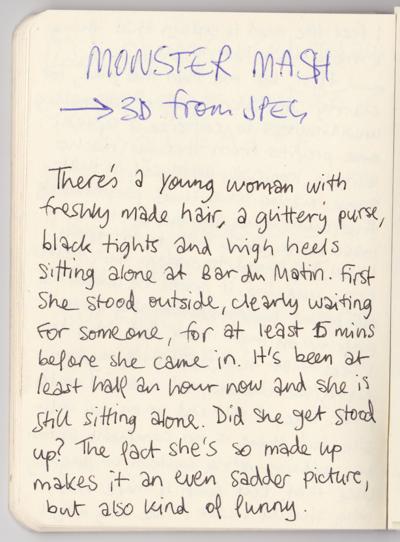 MONSTER MASH
→ 3D from JPEG
There's a young woman with
freshly made hair, a glittery purse,
black tights and high heels
sitting alone at Bar du Matin. First
she stood outside, clearly waiting
for someone, for at least 15 mins
before she came in. It's been at
least half an hour now and she is
still sitting alone. Did she get stood
up? The fact she's so made up
makes it an even sadder picture,
but also kind of funny.